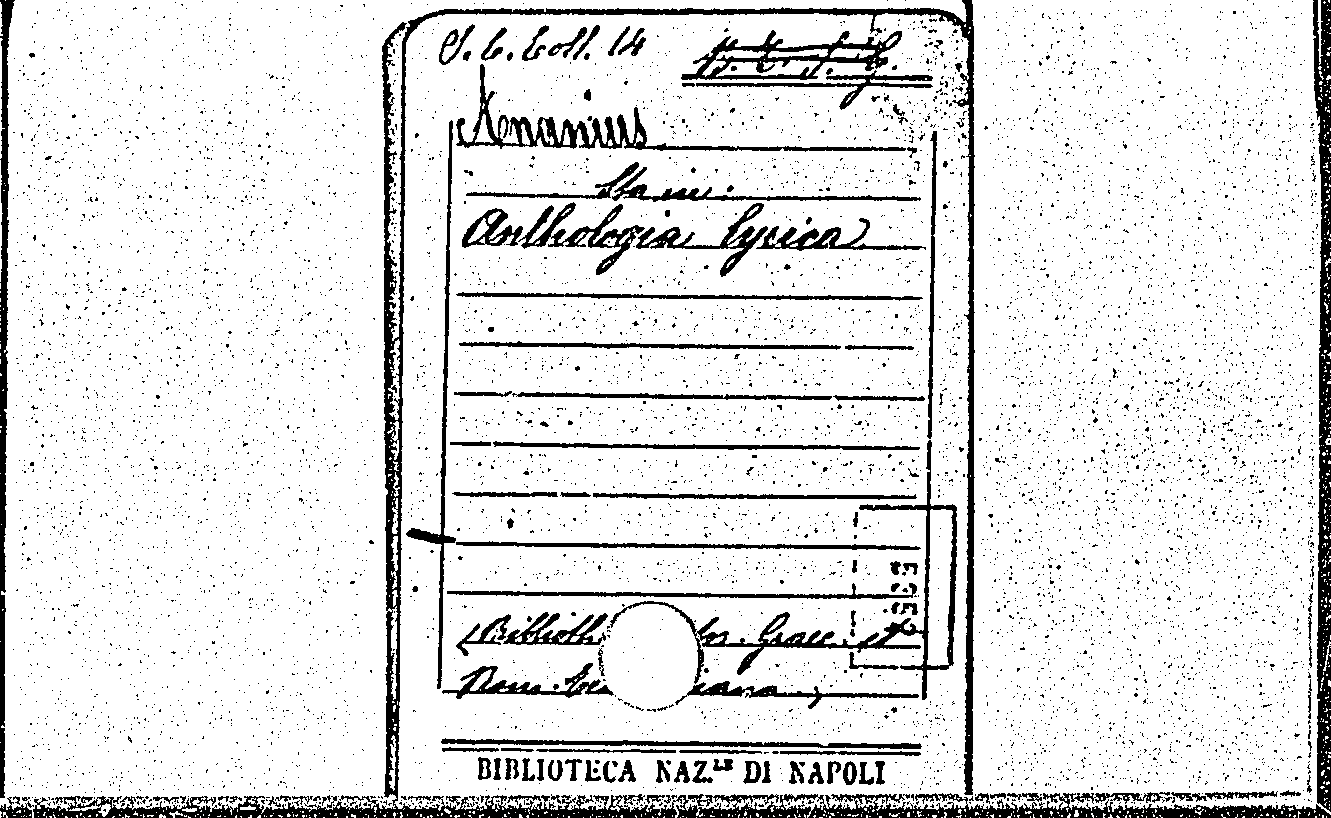 S. C. Coll. 14
Ananius
Sta in:
Anthologia lyrica
(Biblioth for. Graec. et
Rom. Teu iana)
BIBLIOTECA NAZ.LE DI NAPOLI